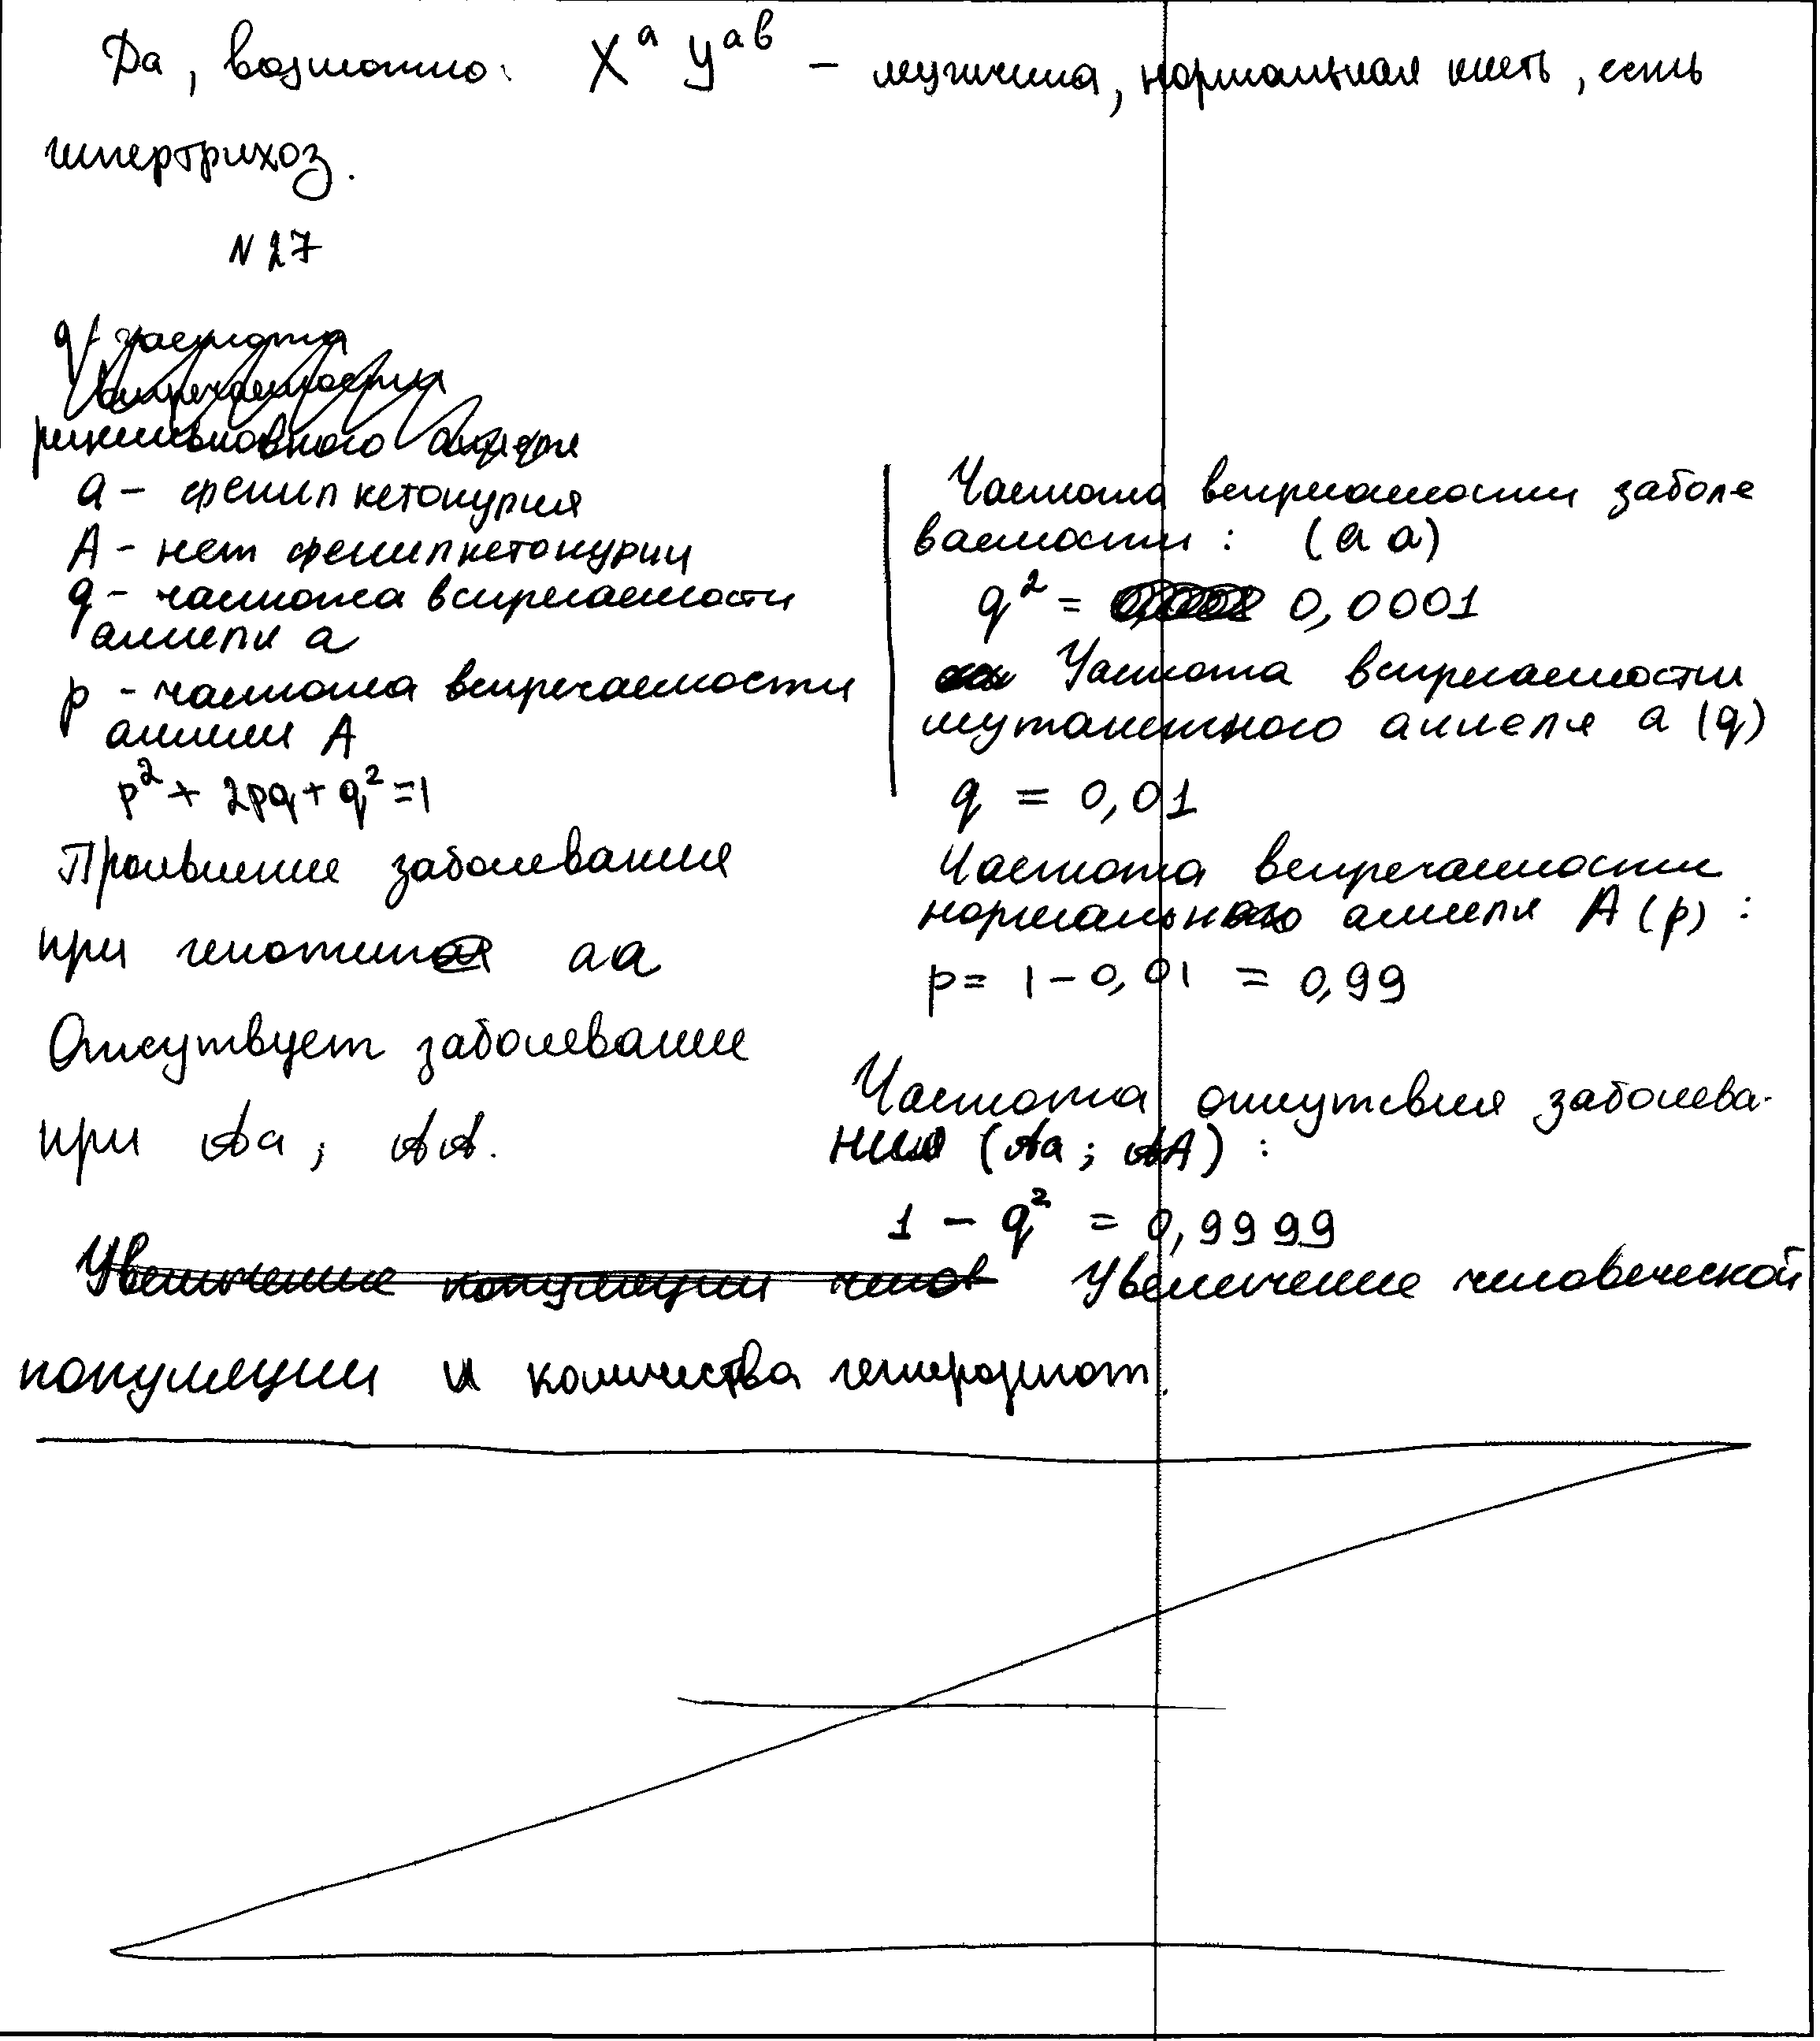 Да, возможно: X^a Y^ab – мужчина, нормальная кисть, есть
гипертрихоз.
N 27
q – частота
встречаемости
рецессивного аллеля
a – фенилкетонурия
A – нет фенилкетонурии
q – частота встречаемости
аллеля a
p – частота встречаемости
аллеля A
p² + 2pq + q² = 1
Проявление заболевания
при генотипе aa
Отсутвует заболевание
при Aa; AA.
Частота встречаемости заболе
ваемости: (aa)
q² = 0,0001
Частота встречаемости
мутантного аллеля a (q)
q = 0,01
Частота встречаемости
нормального аллеля A (p):
p = 1 – 0,01 = 0,99
Частота отсутсвия заболева-
ния (Aa; AA):
1 – q² = 0,9999
Увеличение популяции челов Увеличение человеческой
популяции и количества гетерозигот.